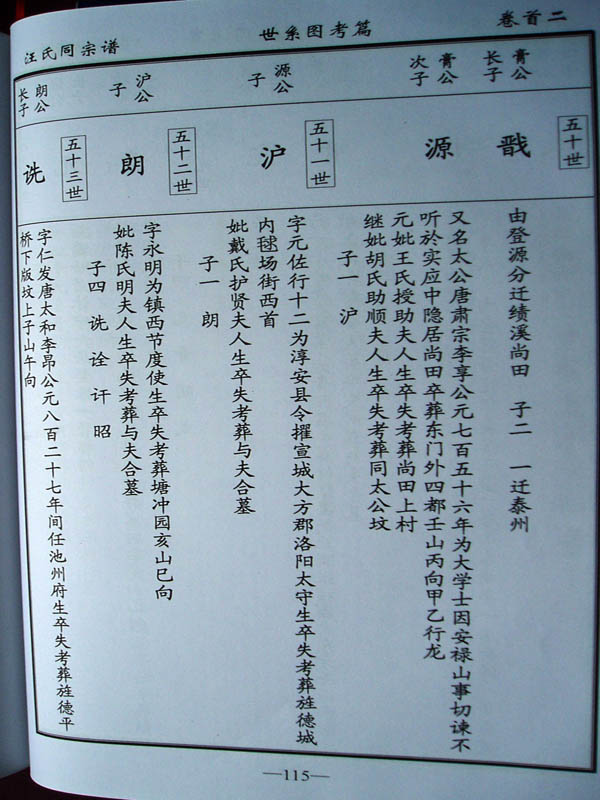 卷首二
世系图考篇
汪氏同宗谱
五十世
膏公长子
戬
膏公次子
源
由登源分迁绩溪尚田 子二 一迁泰州
又名太公唐肃宗李享公元七百五十六年为大学士因安禄山事切谏不
听於实应中隐居尚田卒葬东门外四都壬山丙向甲乙行龙
元妣王氏授助夫人生卒失考葬尚田上村
继妣胡氏助顺夫人生卒失考葬同太公坟
子一 沪
五十一世
源公子
沪
字元佐行十二为淳安县令擢宣城大方郡洛阳太守生卒失考葬旌德城
内毬场街西首
妣戴氏护贤夫人生卒失考葬与夫合墓
子一 朗
五十二世
沪公子
朗
字永明为镇西节度使生卒失考葬塘冲园亥山巳向
妣陈氏明夫人生卒失考葬与夫合墓
子四 诜 诠 讦 昭
五十三世
朗公长子
诜
字仁发唐太和李昂公元八百二十七年间任池州府生卒失考葬旌德平
桥下版坟上子山午向
—115—